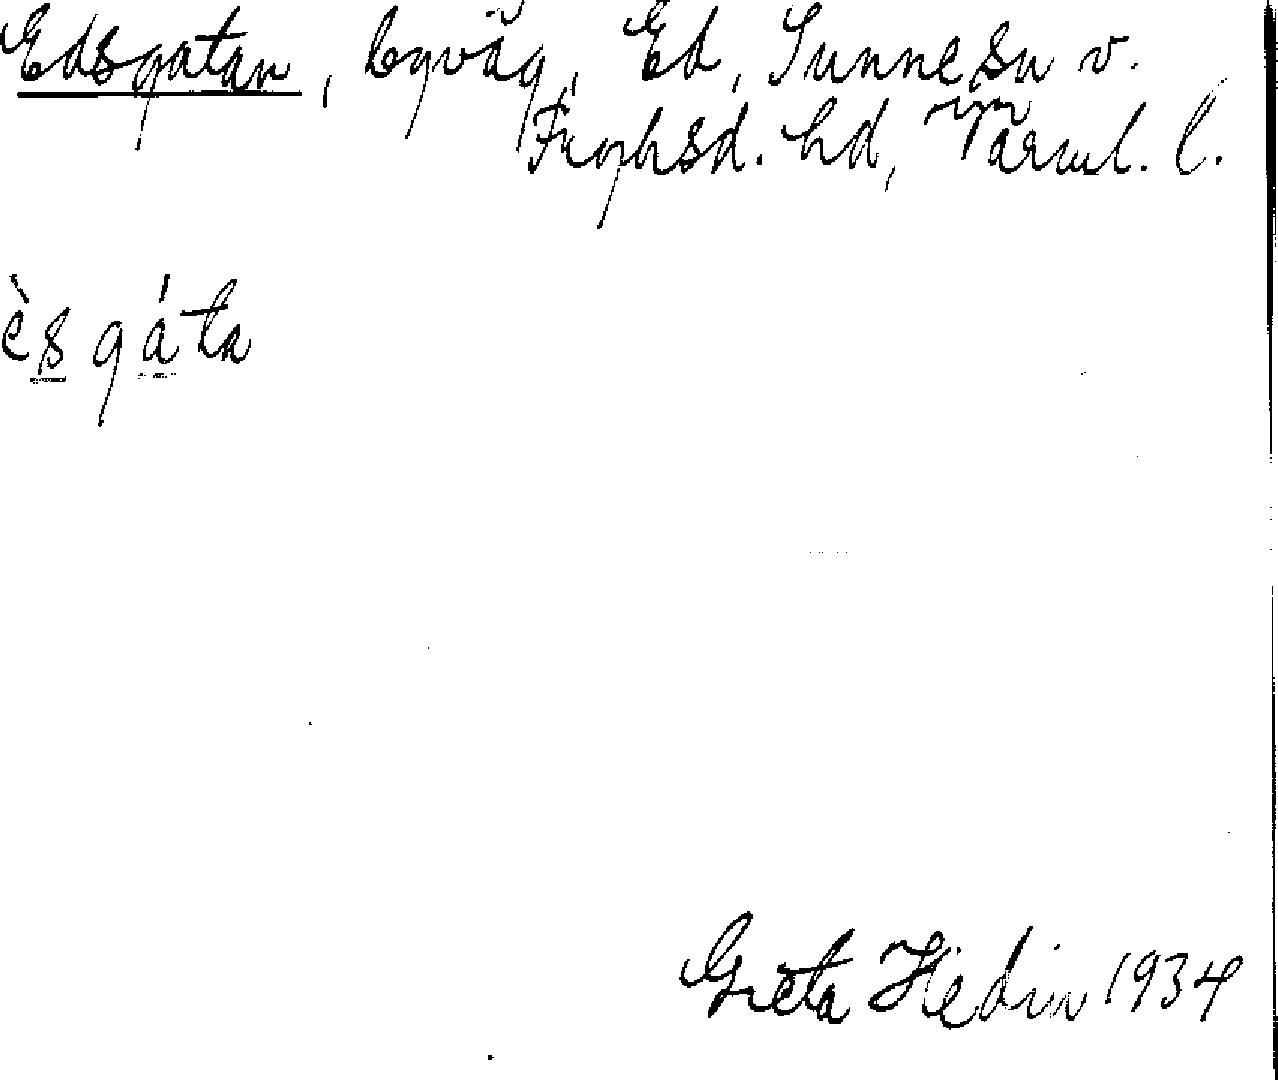 Edsgatan, byväg, Ed, Sunne sn v.
Fryksd. hd, Värml. l.
ès gáta
Greta Hedin 1934